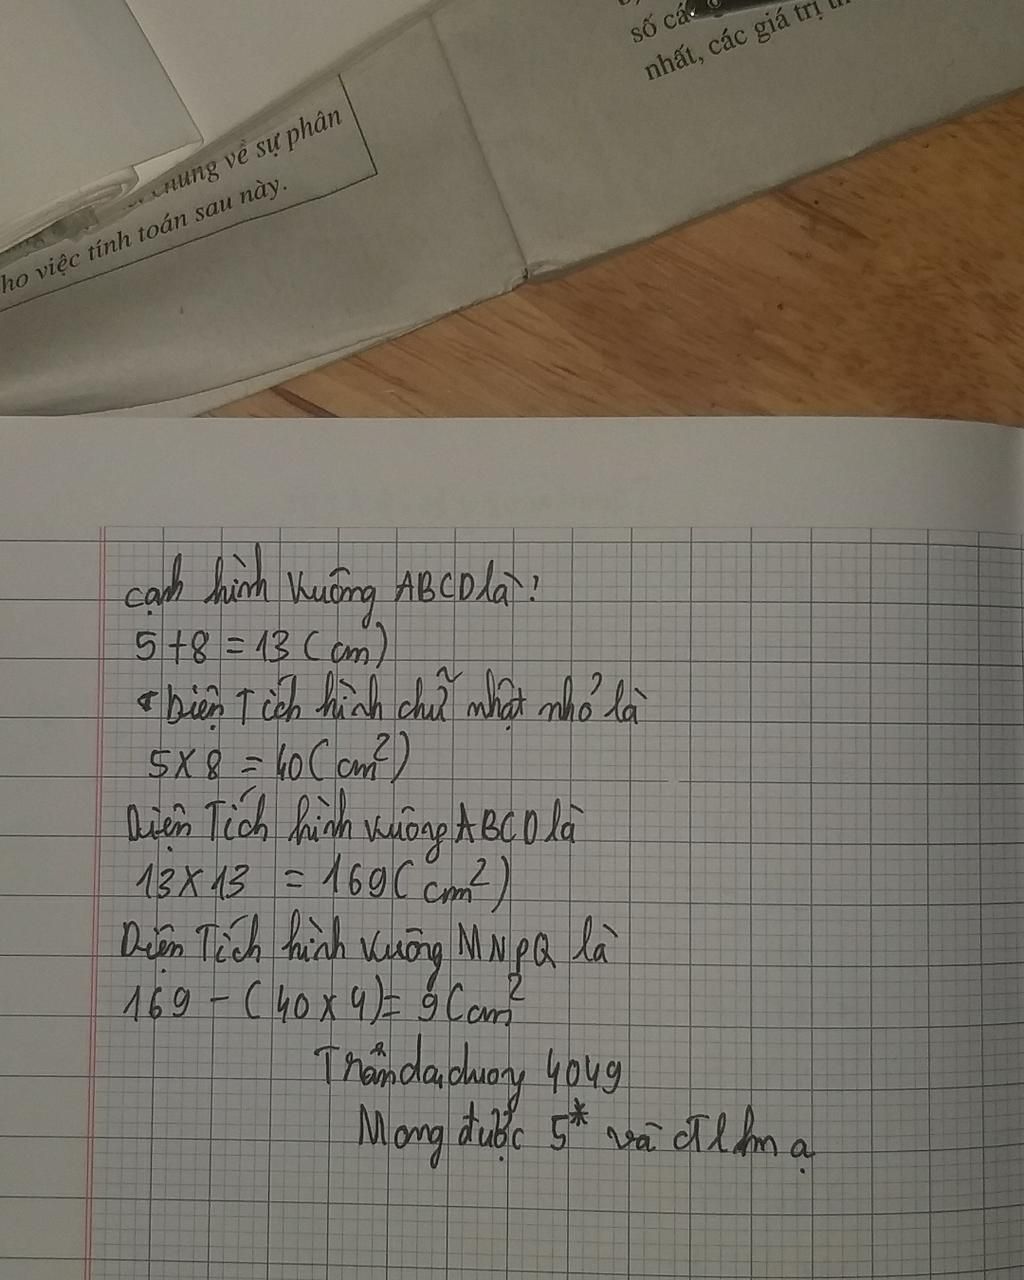 số cá
nhất, các giá trị
hung về sự phân
ho việc tính toán sau này.
cạnh hình vuông ABCD là:
5 + 8 = 13 (cm)
Diện Tích hình chữ nhật nhỏ là
5 x 8 = 40 (cm²)
Diện Tích hình vuông ABCD là
13 x 13 = 169 (cm²)
Diện Tích hình vuông MNPQ là
169 - (40 x 4) = 9 (cm²
4049
Mong được 5* và
ạ